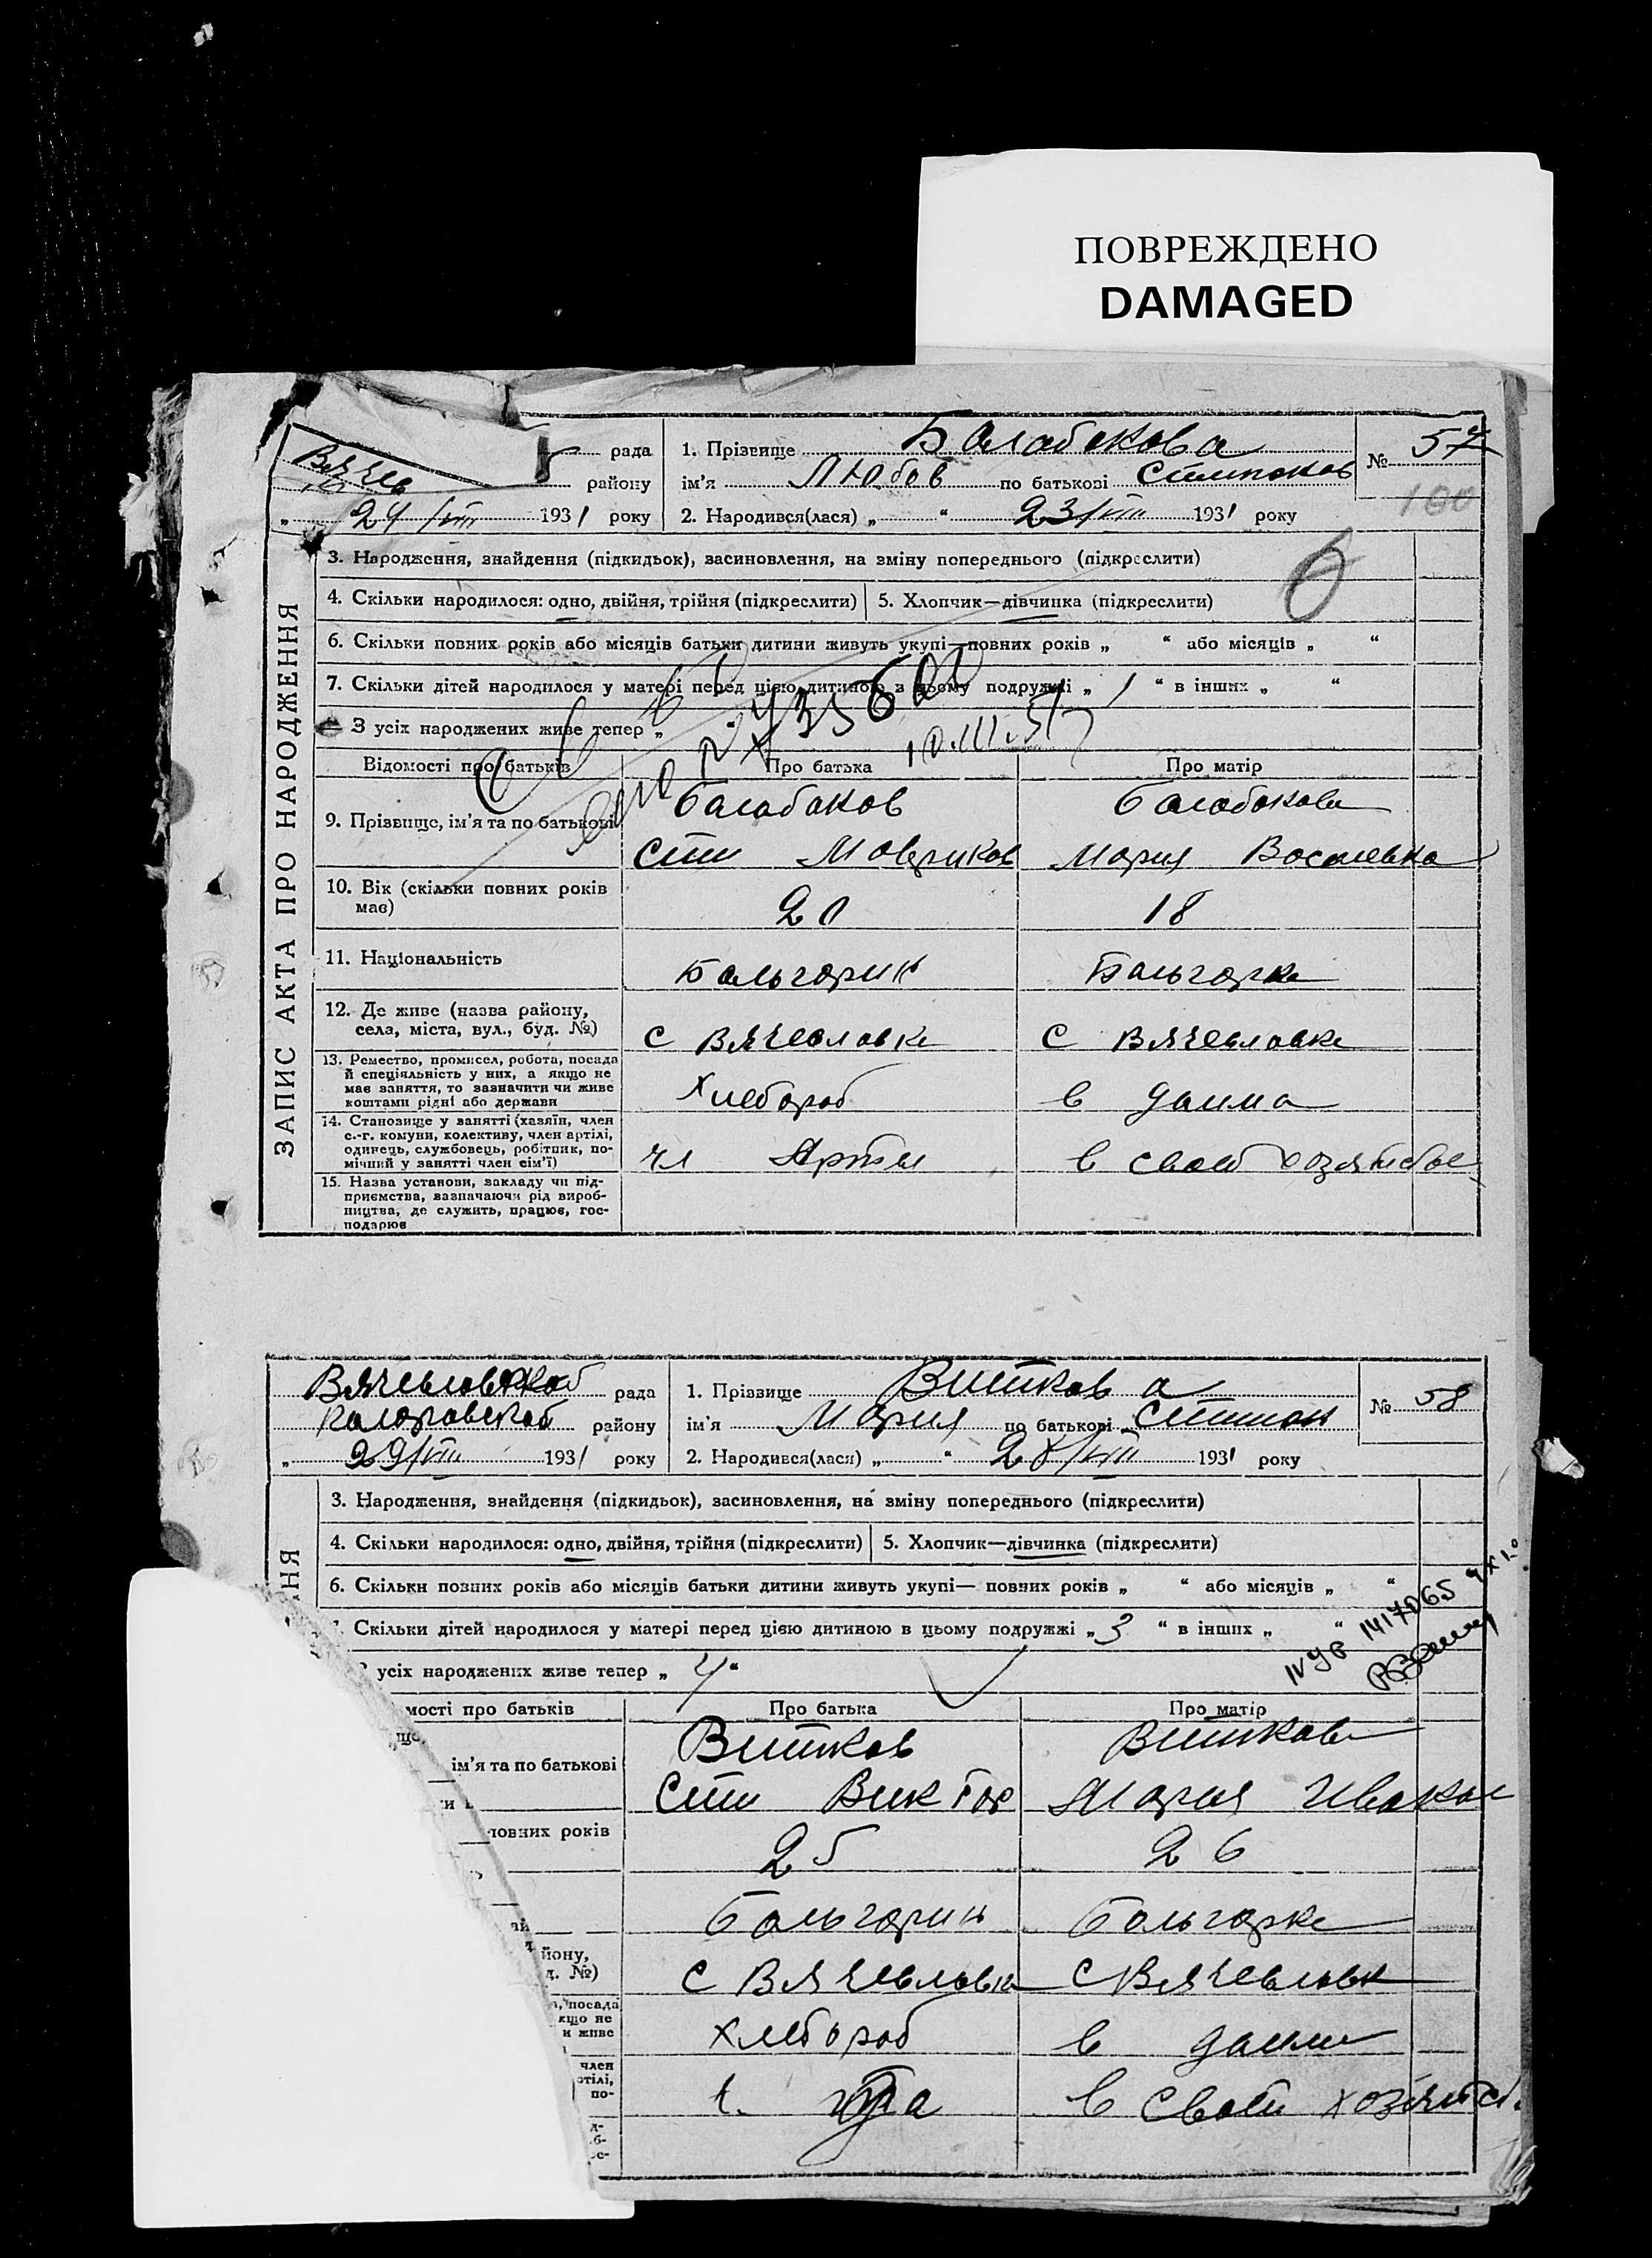 ПОВРЕЖДЕНО
DAMAGED
рада
району
24/VIII 1931 року
1. Прізвище Балабакова
ім'я Любов по батькові
2. Народився(лася) „ “ 23/VIII 1931 року
№ 57
100
ЗАПИС АКТА ПРО НАРОДЖЕННЯ
3. Народження, знайдення (підкидьок), засиновлення, на зміну попереднього (підкреслити)
4. Скільки народилося: одно, двійня, трійня (підкреслити)
5. Хлопчик—дівчинка (підкреслити)
6. Скільки повних років або місяців батьки дитини живуть укупі—повних років „ “ або місяців „ “
7. Скільки дітей народилося у матері перед цією дитиною в цьому подружжі „ 1 “ в інших „ “
З усіх народжених живе тепер „
10.III.57
Відомості про батьків
Про батька
Про матір
9. Прізвище, ім'я та по батькові
Балабаков
Балабакова
Стп Мавриков
Мария Василевна
10. Вік (скільки повних років має)
20
18
11. Національність
Бальгарин
Бальгарка
12. Де живе (назва району, села, міста, вул., буд. №)
с Вячеславка
с Вячеславка
13. Ремество, промисел, робота, посада й спеціяльність у них, а якщо не має заняття, то зазначити чи живе коштами рідні або держави
Хлебороб
в дома
14. Становище у занятті (хазяїн, член с.-г. комуни, колективу, член артілі, одинець, службовець, робітник, помічний у занятті член сім'ї)
чл Артели
в своей хозяйстве
15. Назва установи, закладу чи підприємства, вазначаючи рід виробництва, де служить, працює, господарює
Вячеславской рада
Коларовской району
„ 29/VIII 1931 року
1. Прізвище Виткова
ім'я Мария по батькові
2. Народився(лася) „ “ 28/VIII 1931 року
№ 58
ННЯ
3. Народження, знайдення (підкидьок), засиновлення, на зміну попереднього (підкреслити)
4. Скільки народилося: одно, двійня, трійня (підкреслити)
5. Хлопчик—дівчинка (підкреслити)
6. Скільки повних років або місяців батьки дитини живуть укупі— повних років „ “ або місяців „ “
Скільки дітей народилося у матері перед цією дитиною в цьому подружжі „ 3 “ в інших „ “
усіх народжених живе тепер „ 4 “
1417065
мості про батьків
Про батька
Про матір
ім'я та по батькові
Витков
Виткова
Стп Виктор
Мария Иванов
повних років
25
26
Бальгарин
Бальгарка
йону,
д. №)
с Вячеславка
с Вячеславк
посада
якщо не
и живе
хлебороб
в доми
член
ртілі,
по-
в своей хозяйств